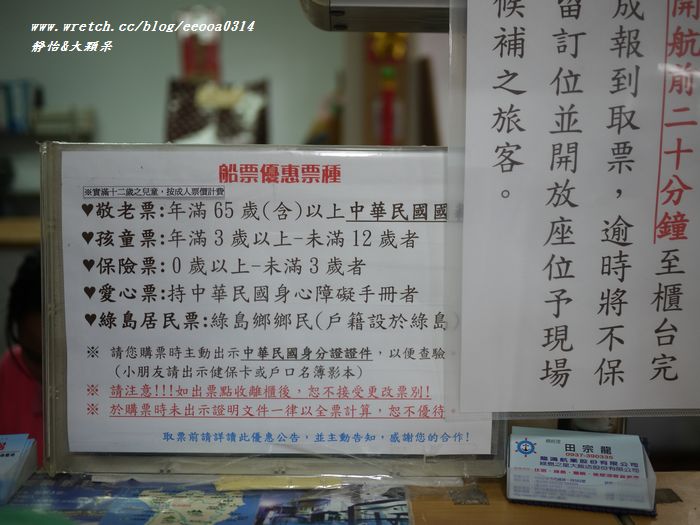 www.wretch.cc/blog/eeooa0314
靜怡&大顆呆
船票優惠票種
※實滿十二歲之兒童，按成人票價計費
♥敬老票:年滿 65 歲(含)以上中華民國國
♥孩童票:年滿 3 歲以上-未滿 12 歲者
♥保險票:0 歲以上-未滿 3 歲者
♥愛心票:持中華民國身心障礙手冊者
♥綠島居民票:綠島鄉鄉民(戶籍設於綠島)
※ 請您購票時主動出示中華民國身分證證件，以便查驗。
(小朋友請出示健保卡或戶口名簿影本)
※ 請注意!!!如出票點收離櫃後，恕不接受更改票別!
※ 於購票時未出示證明文件一律以全票計算，恕不優待。
取票前請詳讀此優惠公告，並主動告知，感謝您的合作!
開航前二十分鐘至櫃台完
成報到取票，逾時將不保
留訂位並開放座位予現場
候補之旅客。
田宗龍
0937-390335